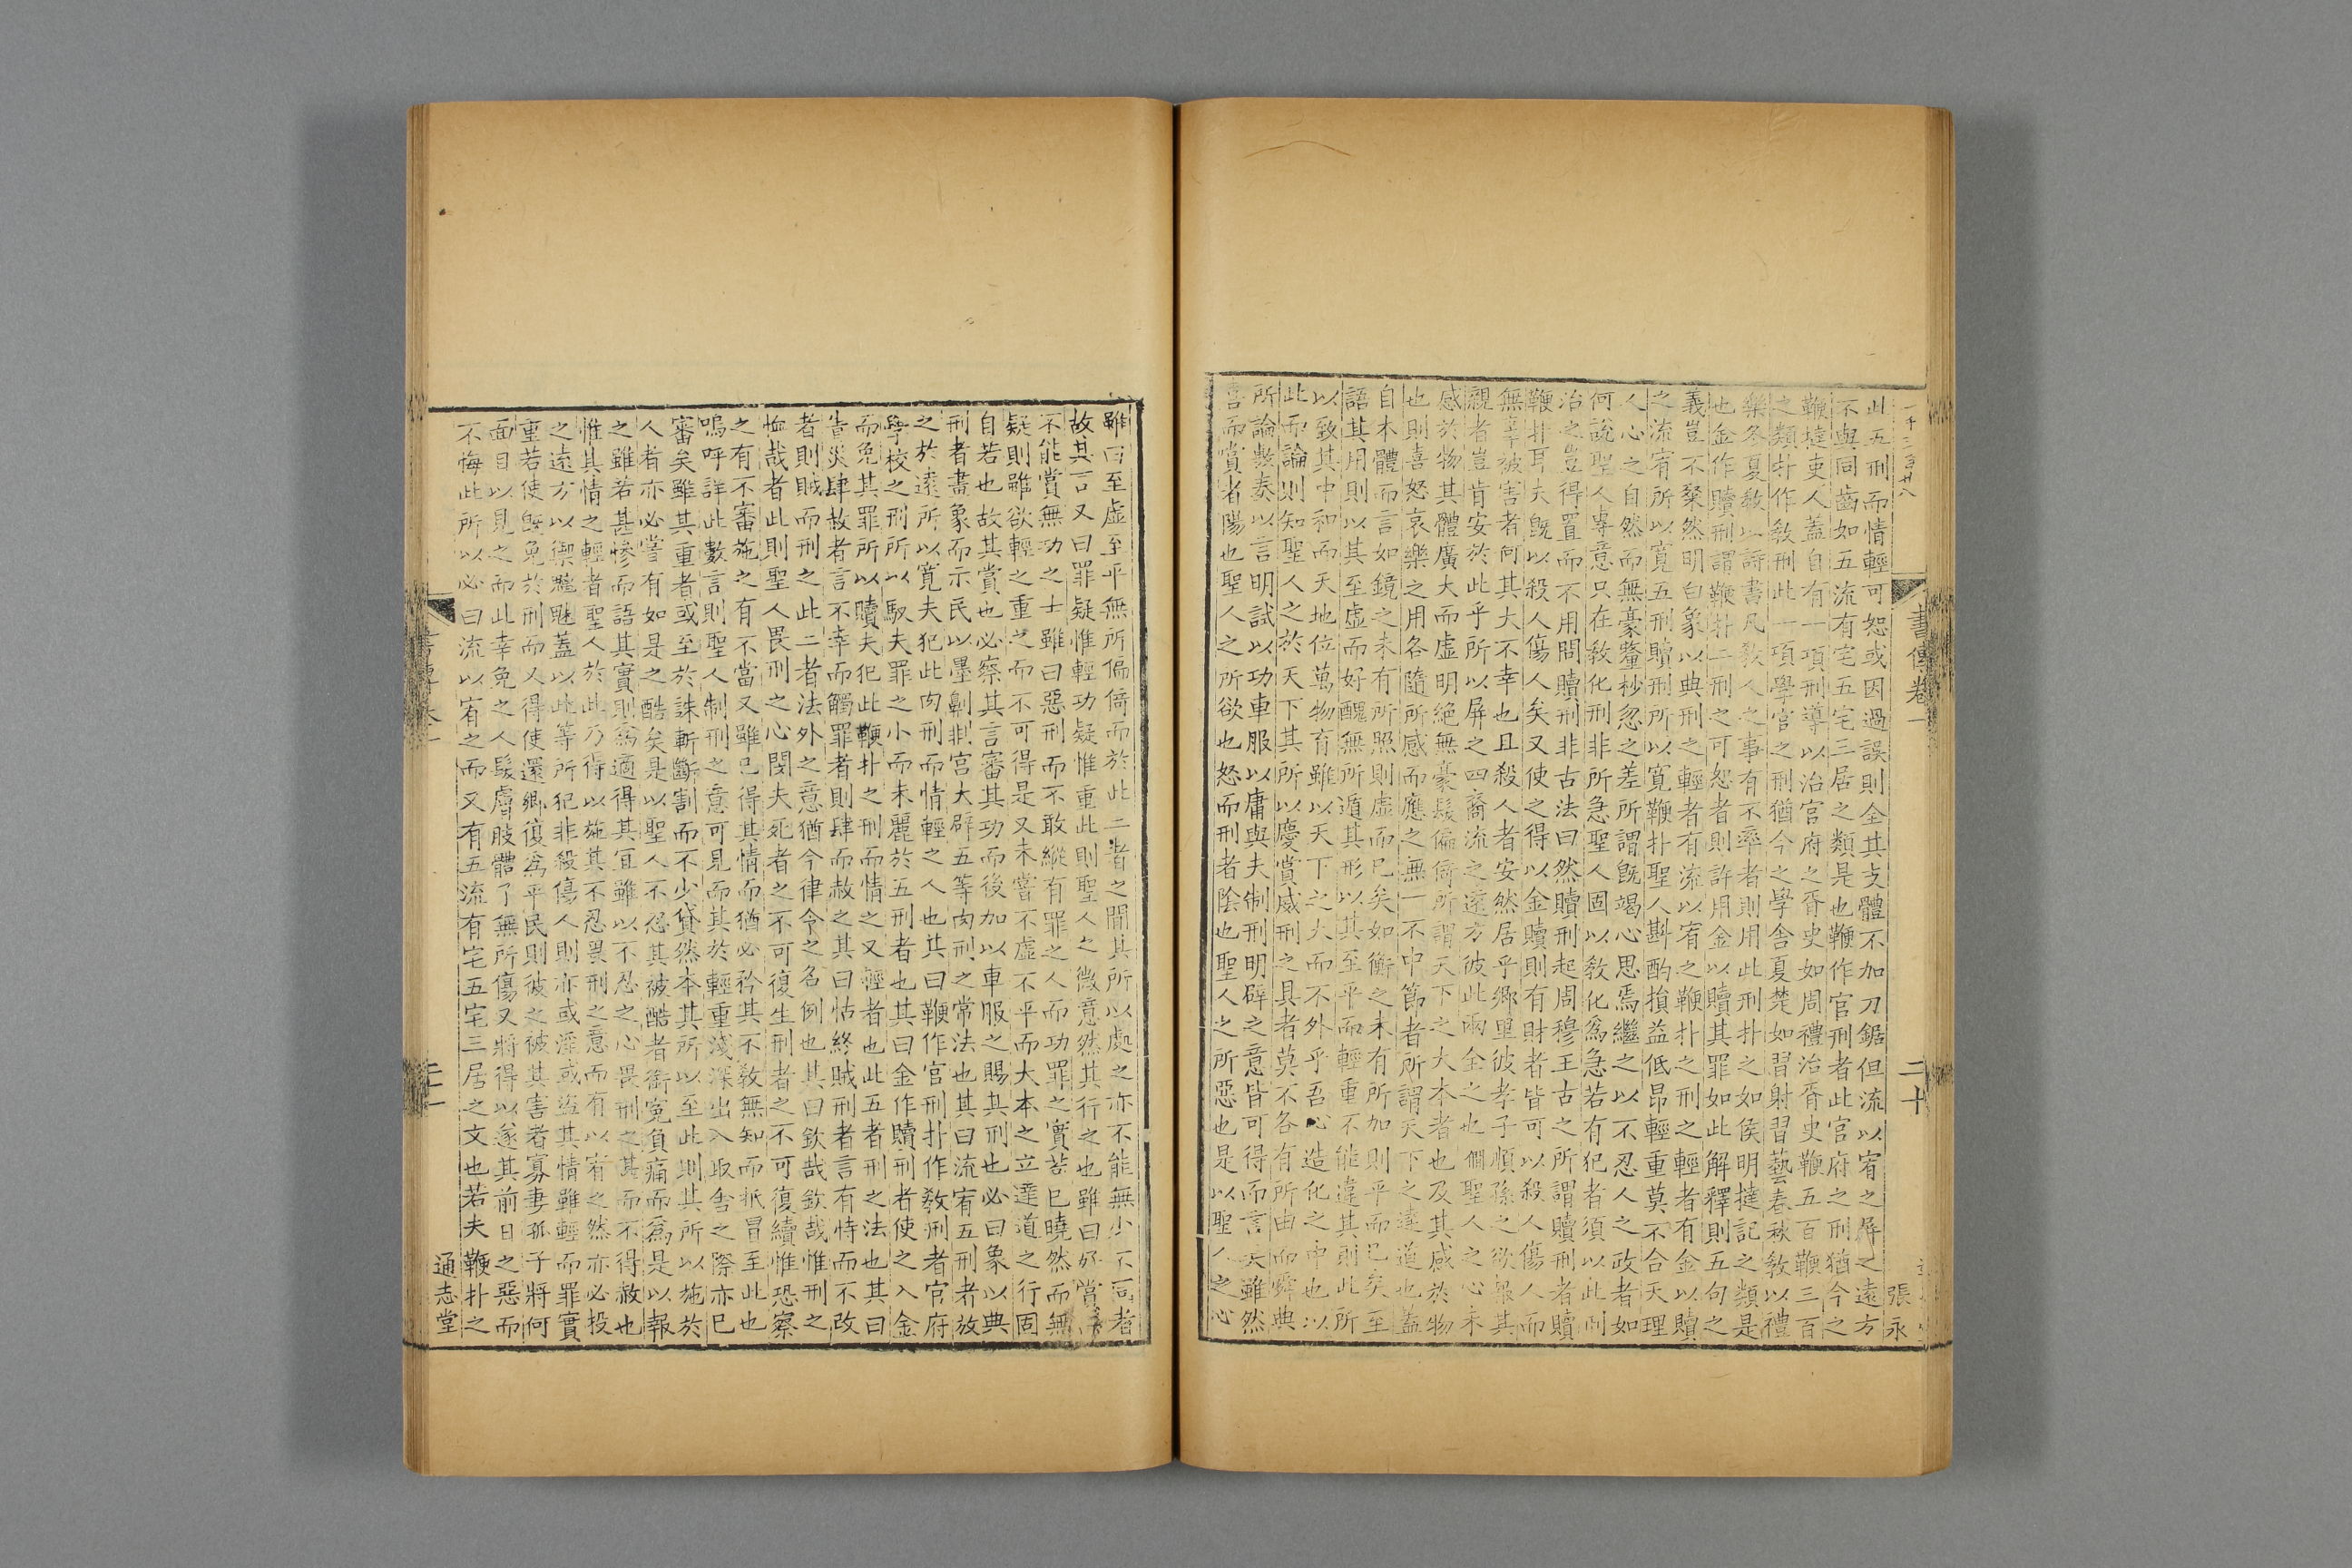 一千三百廿八
書傳卷一
二十
張永
此五刑而情輕可恕或因過誤則全其支體不加刀鋸但流以宥之屏之遠方
不與同齒如五流有宅五宅三居之類是也鞭作官刑者此官府之刑猶今之
鞭撻吏人蓋自有一項刑導以治官府之胥史如周禮治胥史鞭五百鞭三百
之類扑作敎刑此一項學官之刑猶今之學舍夏楚如習射習藝春秋敎以禮
樂冬夏敎以詩書凡敎人之事有不率者則用此刑扑之如侯明撻記之類是
也金作贖刑謂鞭扑二刑之可恕者則許用金以贖其罪如此解釋則五句之
義豈不粲然明白象以典刑之輕者有流以宥之鞭扑之刑之輕者有金以贖
之流宥所以寬五刑贖刑所以寬鞭扑聖人斟酌損益低昂輕重莫不合天理
人心之自然而無豪釐杪忽之差所謂旣竭心思焉繼之以不忍人之政者如
何說聖人專意只在敎化刑非所急聖人固以敎化爲急若有犯者須以此刑
治之豈得置而不用問贖刑非古法曰然贖刑起周穆王古之所謂贖刑者贖
鞭扑耳夫旣以殺人傷人矣又使之得以金贖則有財者皆可以殺人傷人而
無辜被害者何其大不幸也且殺人者安然居乎鄉里彼孝子順孫之欲報其
親者豈肯安於此乎所以屏之四裔流之遠方彼此兩全之也 聖人之心未
感於物其體廣大而虛明絶無豪髮偏倚所謂天下之大本者也及其感於物
也則喜怒哀樂之用各隨所感而應之無一不中節者所謂天下之達道也蓋
自本體而言如鏡之未有所照則虛而已矣如衡之未有所加則平而已矣至
語其用則以其至虛而好醜無所遁其形以其至平而輕重不能違其則此所
以致其中和而天地位萬物育雖以天下之大而不外乎吾心造化之中也以
此而論則知聖人之於天下其所以慶賞威刑之具者莫不各有所由而舜典
所論敷奏以言明試以功車服以庸與夫制刑明辟之意皆可得而言矣雖然
喜而賞者陽也聖人之所欲也怒而刑者陰也聖人之所惡也是以聖人之心
雖曰至虛至平無所偏倚而於此二者之間其所以處之亦不能無少不同者
故其言又曰罪疑惟輕功疑惟重此則聖人之微意然其行之也雖曰好賞
不能賞無功之士雖曰惡刑而不敢縱有罪之人而功罪之實苟已曉然而無
疑則雖欲輕之重之而不可得是又未嘗不虛不平而大本之立達道之行固
自若也故其賞也必察其言審其功而後加以車服之賜其刑也必曰象以典
刑者畫象而示民以墨劓剕宮大辟五等肉刑之常法也其曰流宥五刑者放
之於遠所以寬夫犯此肉刑而情輕之人也其曰鞭作官刑扑作敎刑者官府
學校之刑所以馭夫罪之小而未麗於五刑者也其曰金作贖刑者使之入金
而免其罪所以贖夫犯此鞭扑之刑而情之又輕者也此五者刑之法也其曰
眚災肆赦者言不幸而觸罪者則肆而赦之其曰怙終賊刑者言有恃而不改
者則賊而刑之此二者法外之意猶今律令之名例也其曰欽哉欽哉惟刑之
恤哉者此則聖人畏刑之心閔夫死者之不可復生刑者之不可復續惟恐察
之有不審施之有不當又雖已得其情而猶必矜其不敎無知而抵冒至此也
嗚呼詳此數言則聖人制刑之意可見而其於輕重淺深出入取舍之際亦已
審矣雖其重者或至於誅斬斷割而不少貸然本其所以至此則其所以施於
人者亦必嘗有如是之酷矣是以聖人不忍其被酷者銜寃負痛而爲是以報
之雖若甚慘而語其實則爲適得其宜雖以不忍之心畏刑之甚而不得赦也
惟其情之輕者聖人於此乃得以施其不忍畏刑之意而有以宥之然亦必投
之遠方以禦魑魅蓋以此等所犯非殺傷人則亦或淫或盜其情雖輕而罪實
重若使旣免於刑而又得使還鄉復爲平民則彼之被其害者寡妻孤子將何
面目以見之而此幸免之人髮膚肢體了無所傷又將得以遂其前日之惡而
不悔此所以必曰流以宥之而又有五流有宅五宅三居之文也若夫鞭扑之
通志堂